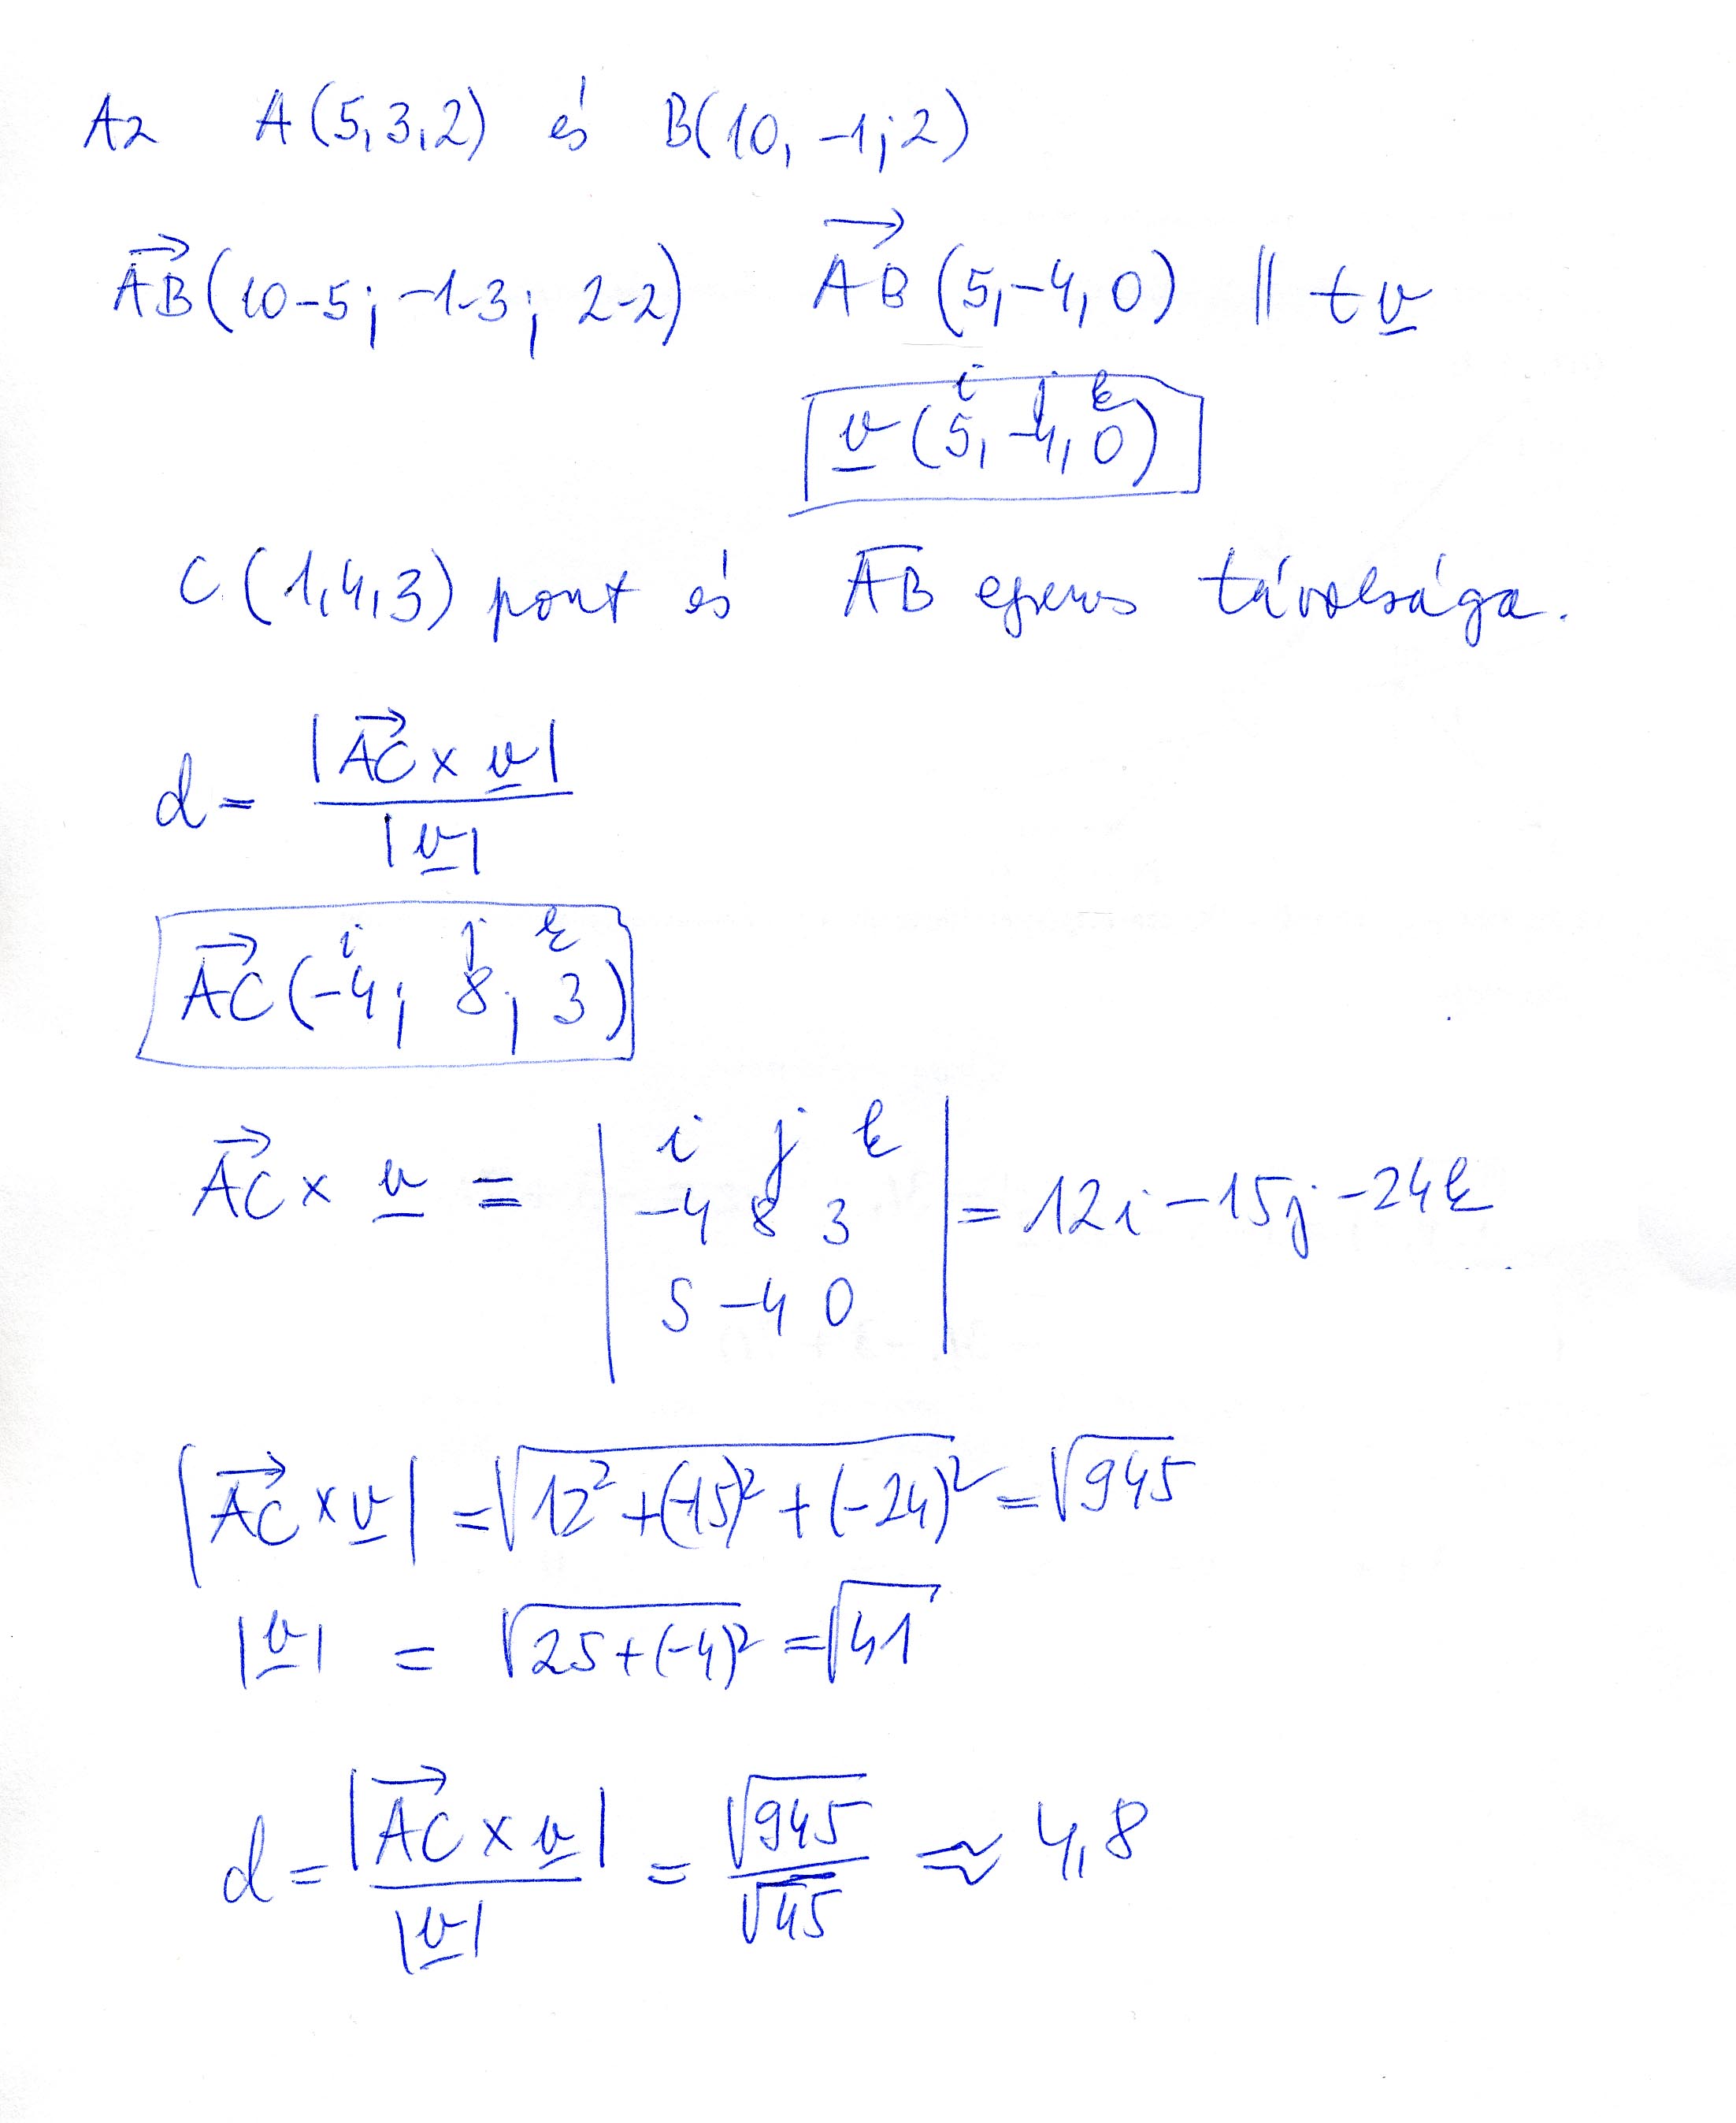 Az A(5,3,2) és B(10, -1; 2)
→AB(10-5; -1-3; 2-2) →AB(5,-4,0) || t v
i j k
v(5, -4, 0)
C(1,4,3) pont és AB egyenes távolsága.
d = |→AC x v| / |v|
i j k
→AC(-4; 8; 3)
→AC x v = | i j k
-4 8 3
5 -4 0 | = 12i - 15j - 24k
|→AC x v| = √(12² + (-15)² + (-24)²) = √945
|v| = √(25 + (-4)²) = √41
d = |→AC x v| / |v| = √945 / √45 ≈ 4,8